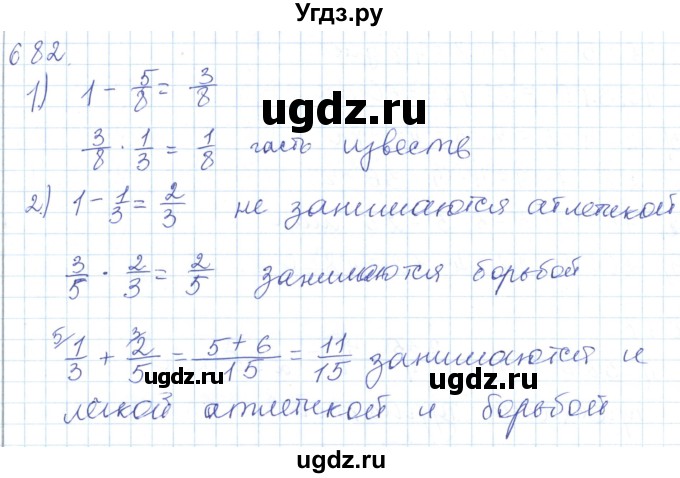 Угдз.ру
682.
1) 1 - 5/8 = 3/8
ugdz.ru
3/8 · 1/3 = 1/8 часть известь
2) 1 - 1/3 = 2/3 не занимаются атлетикой
ugdz.ru
3/5 · 2/3 = 2/5 занимаются борьбой
5/ 1/3 + 3/ 2/5 = 5+6/15 = 11/15 занимаются и
ugdz.ru ugdz.ru
легкой атлетикой и борьбой
ugdz.ru